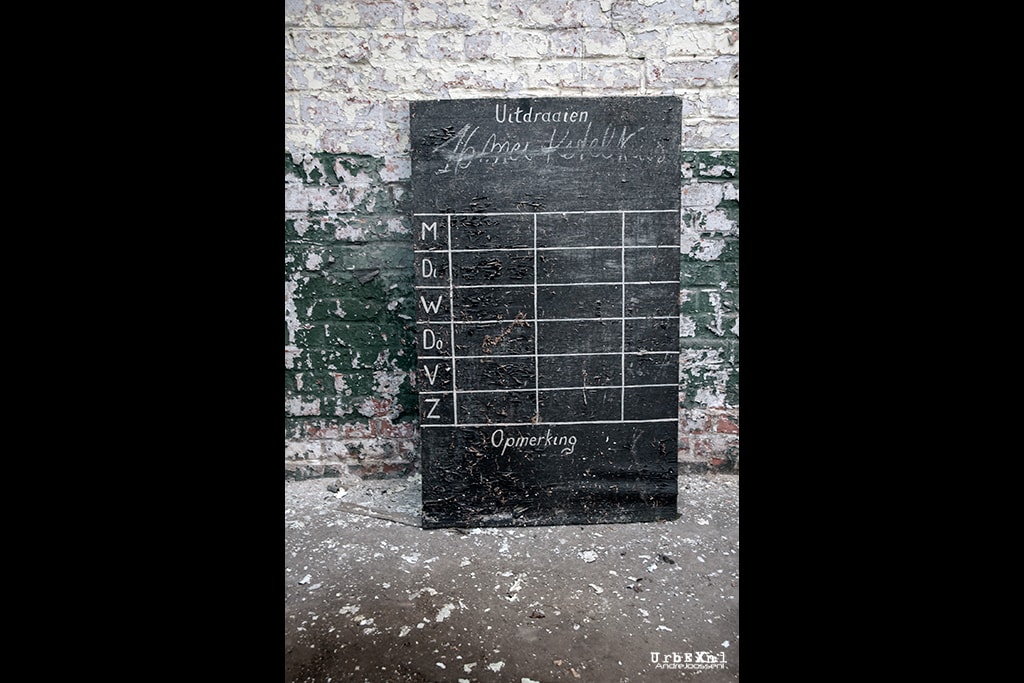 Uitdraaien
16 Mei
M
Di
W
Do
V
Z
Opmerking
UrbEXnl
AndreJoosse.nl